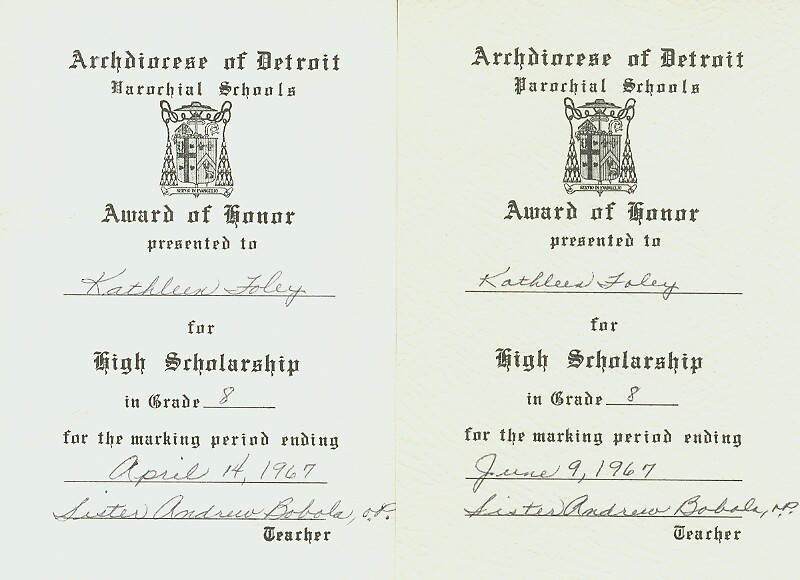 Archdiocese of Detroit
Parochial Schools
SERVIO IN EVANGELIO
Award of Honor
presented to
Kathleen Foley
for
High Scholarship
in Grade 8
for the marking period ending
April 14, 1967
Sister Andrew Bobola, O.P.
Teacher
Archdiocese of Detroit
Parochial Schools
SERVIO IN EVANGELIO
Award of Honor
presented to
Kathleen Foley
for
High Scholarship
in Grade 8
for the marking period ending
June 9, 1967
Sister Andrew Bobola, O.P.
Teacher